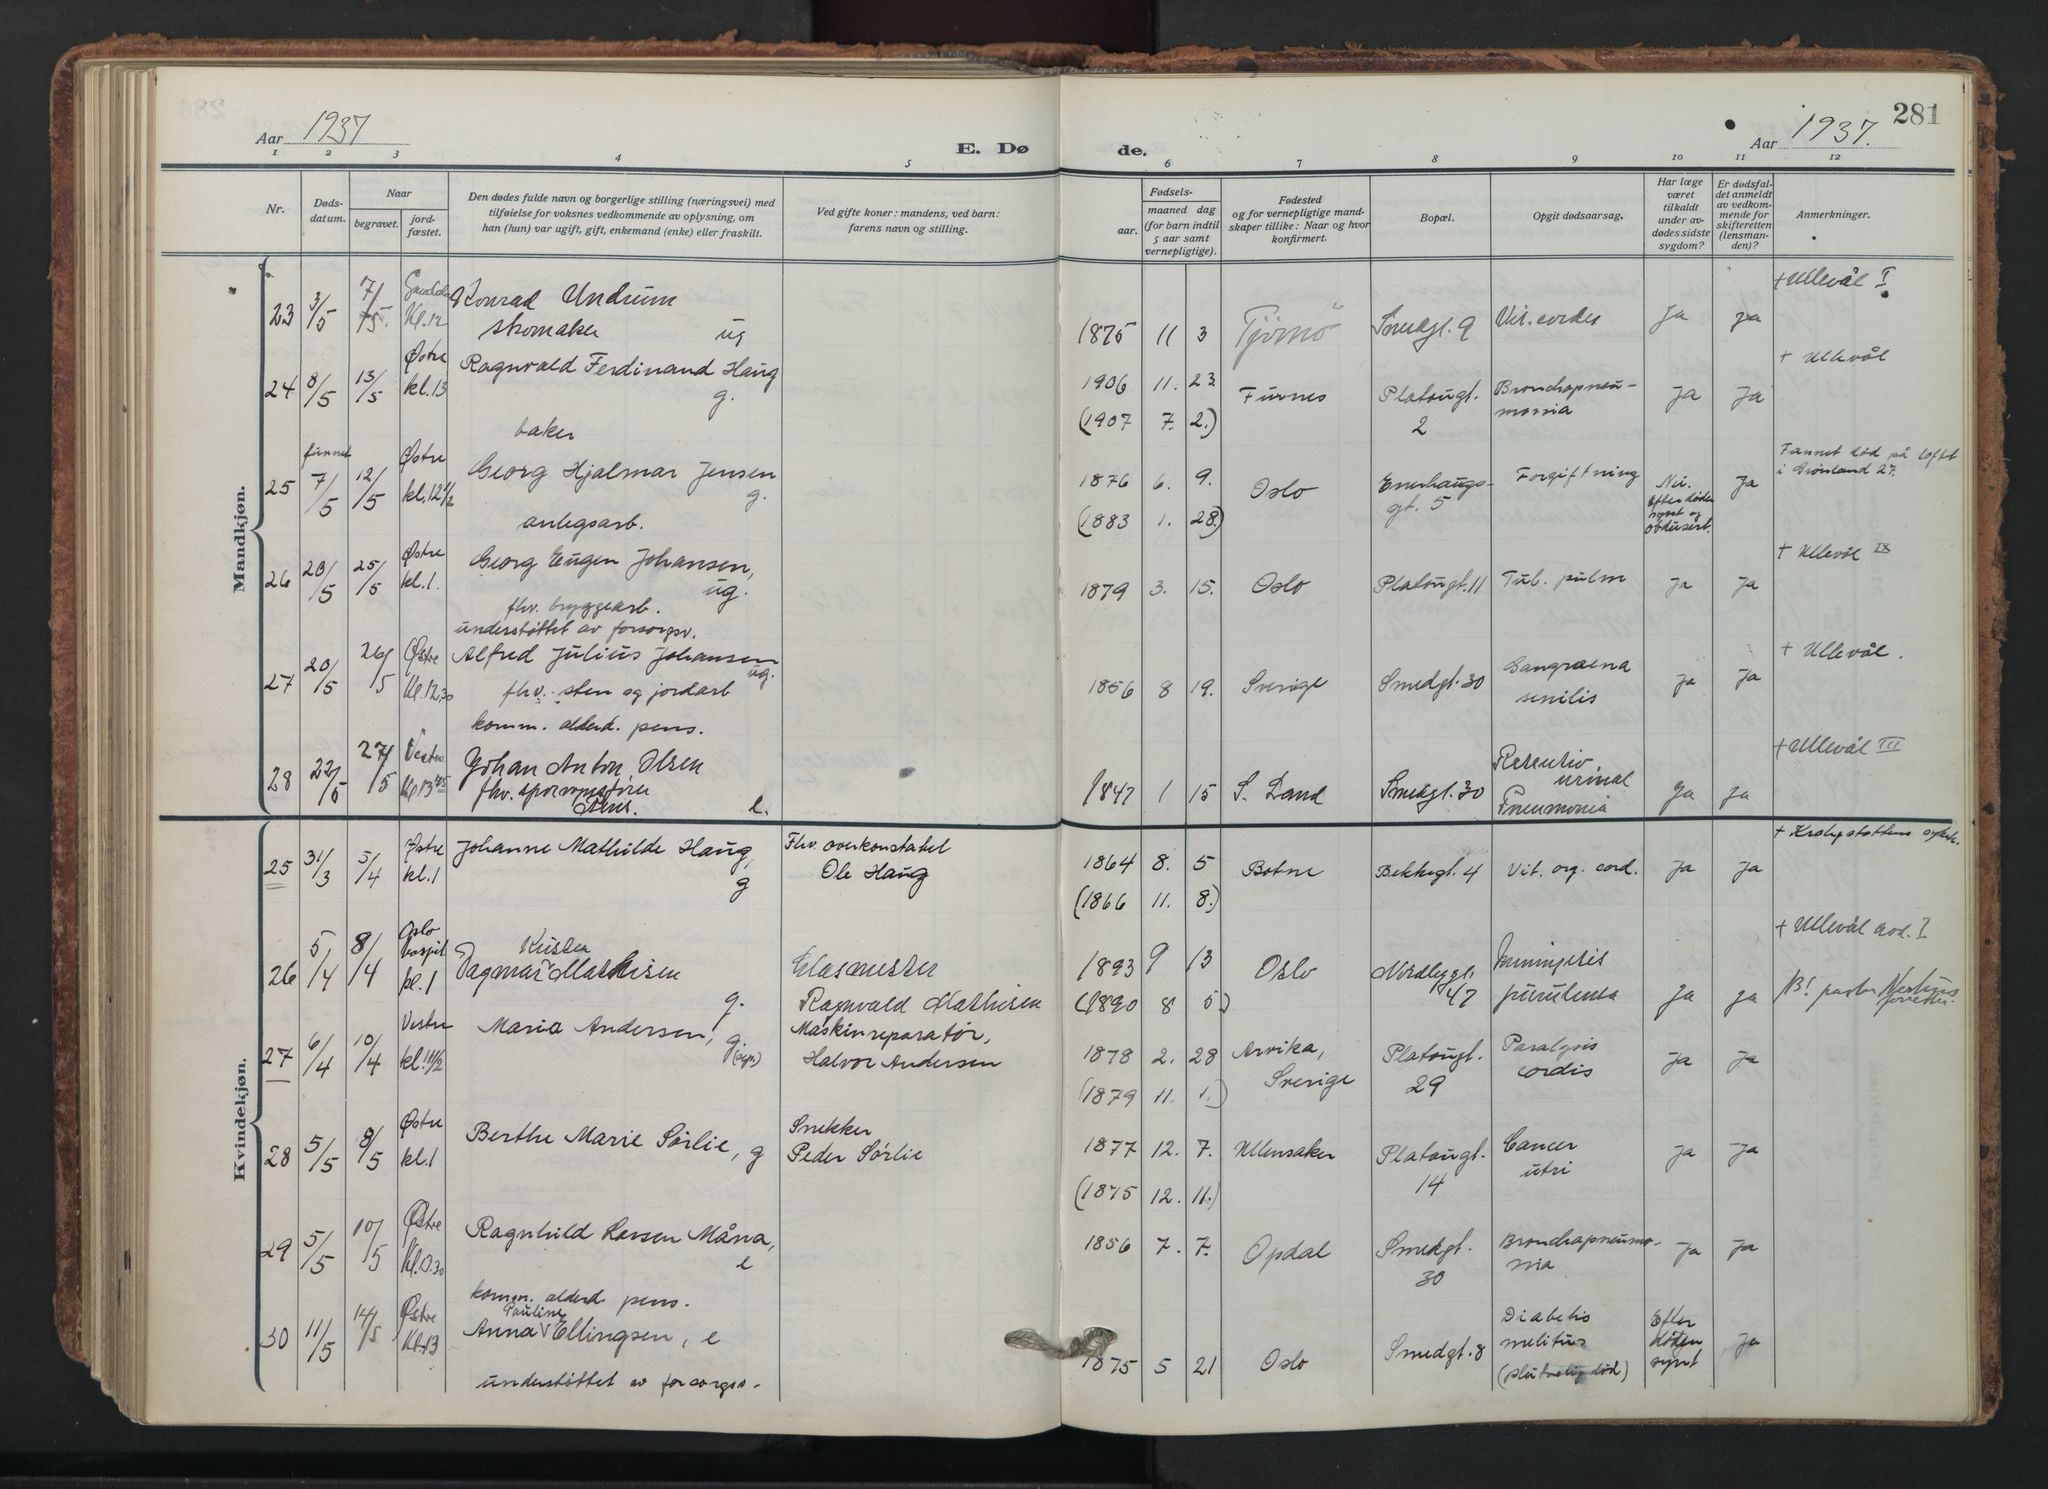 Aar 1937
E. Dø
de.
Aar 1937.
281
1 2 3 4 5 6 7 8 9 10 11 12
Nr.
Døds-
datum.
Naar
begravet.
jord-
fæstet.
Den dødes fulde navn og borgerlige stilling (næringsvei) med
tilføielse for voksnes vedkommende av oplysning, om
han (hun) var ugift, gift, enkemand (enke) eller fraskilt.
Ved gifte koner: mandens, ved barn:
farens navn og stilling.
Fødsels-
aar.
maaned dag
(for barn indtil
5 aar samt
vernepligtige).
Fødested
og for vernepligtige mand-
skaper tillike: Naar og hvor
konfirmert.
Bopæl.
Opgit dødsaarsag.
Har læge
været
tilkaldt
under av-
dødes sidste
sygdom?
Er dødsfal-
det anmeldt
av vedkom-
mende for
skifteretten
(lensman-
den)?
Anmerkninger.
Mandkjøn.
23 3/5 7/5 Kl. 12 Konrad Undrum
skomaker ug
1875 11 3 Tjömö Smedgt. 9 Vit. cordis Ja ja + Ullevål I
24 8/5 13/5 Østre kl. 13 Ragnvald Ferdinand Haug
g.
baker
1906 11. 23 Furnes Platougt. 2 Bronchopneu-
monia Ja Ja + Ullevål
(1907 7. 2.)
25 funnet 7/5 12/5 Østre kl. 12 1/2 Georg Hjalmar Jensen
g.
anlegsarb.
1876 6. 9. Oslo Enerhaugs-
gt. 5 Forgiftning Nei.
Efter døden
synt og
obdusert. Ja Funnet død på loftet
i Grønland 27.
(1883 1. 28.)
26 20/5 25/5 Østre kl. 1. Georg Eugen Johansen,
ug.
fhv. bryggearb.
understøttet av forsorgsv.
1879 3. 15. Oslo Platougt. 11 Tub. pulm Ja Ja + Ullevål IX
27 20/5 26/5 Østre Kl. 12.30 Alfred Julius Johansen
ug.
fhv. sten og jordarb
komm. alderd. pens.
1856 8 19. Sverige Smedgt. 30 Gangraena
senilis Ja Ja + Ullevål.
28 22/5 27/5 Vestre Kl 13 45 Johan Anton Olsen
fhv. e.
1847 1 15 S. Land Smedgt. 30 urinal
Pneumonia Ja Ja + Ullevål III
Kvindekjøn.
25 31/3 5/4 Østre kl. 1 Johanne Mathilde Haug,
g
Fhv. overkonstabel
Ole Haug
1864 8. 5 Botne Bekkegt. 4 Vit. org. cord. Ja Ja + Krohgstøttens sykeh.
(1866 11. 8.)
26 5/4 8/4 Oslo hospit kl. 1 Dagmar Mathisen
g.
Glasmester
Ragnvald Mathisen
1893 9 13 Oslo Nordbygt.
47 Meningitis
purulenta Ja Ja + Ullevål avd. I
(1890 8 5)
NB! pastor
27 6/4 10/4 Vestre kl. 11 1/2 Maria Andersen, g.
Maskinreparatør,
Halvor Andersen
1878 2. 28 Arvika,
Sverige Platougt.
29 Paralysis
cordis Ja Ja
(1879 11. 1.)
28 5/5 8/5 Østre kl. 1 Berthe Marie Sørlie, g
Snekker
Peder Sørlie
1877 12. 7. Ullensaker Platougt.
14 Cancer
utri Ja Ja
(1875 12. 11.)
29 5/5 10/5 Østre Kl. 13.30 Ragnhild Larsen Måna,
e
komm. alderd. pens.
1856 7. 7. Opdal Smedgt.
30 Bronchopneumo-
nia Ja Ja
30 11/5 14/5 Østre Kl. 13 Pauline
Anna Ellingsen, e
understøttet av forsorgsv.
1875 5 21 Oslo Smedgt. 8 Diabetis
melitus Efter
døden
synt Ja